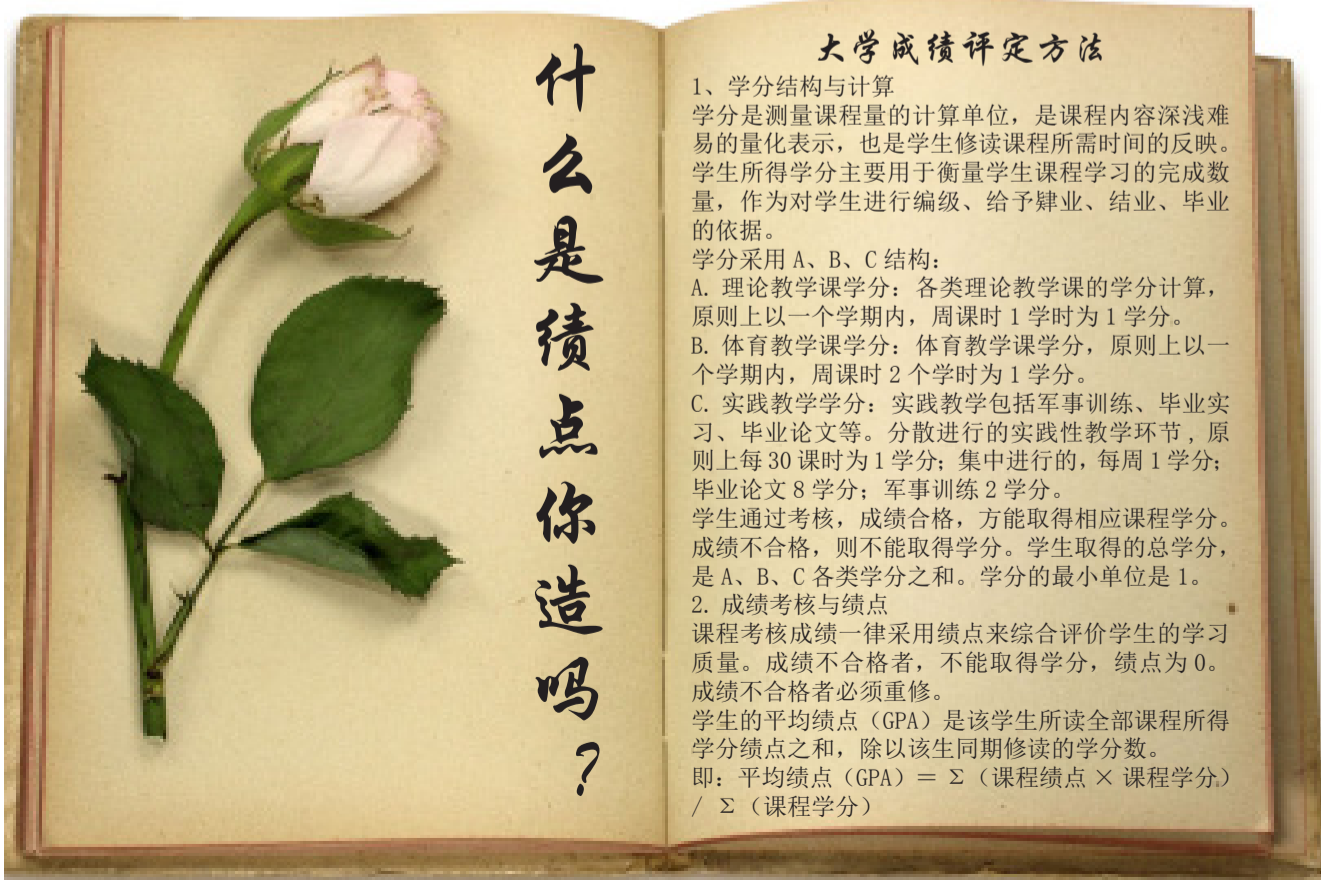 什么是绩点你造吗？
大学成绩评定方法
1、学分结构与计算
学分是测量课程量的计算单位，是课程内容深浅难
易的量化表示，也是学生修读课程所需时间的反映。
学生所得学分主要用于衡量学生课程学习的完成数
量，作为对学生进行编级、给予肄业、结业、毕业
的依据。
学分采用 A、B、C 结构：
A. 理论教学课学分：各类理论教学课的学分计算，
原则上以一个学期内，周课时 1 学时为 1 学分。
B. 体育教学课学分：体育教学课学分，原则上以一
个学期内，周课时 2 个学时为 1 学分。
C. 实践教学学分：实践教学包括军事训练、毕业实
习、毕业论文等。分散进行的实践性教学环节，原
则上每 30 课时为 1 学分；集中进行的，每周 1 学分；
毕业论文 8 学分；军事训练 2 学分。
学生通过考核，成绩合格，方能取得相应课程学分。
成绩不合格，则不能取得学分。学生取得的总学分，
是 A、B、C 各类学分之和。学分的最小单位是 1。
2. 成绩考核与绩点
课程考核成绩一律采用绩点来综合评价学生的学习
质量。成绩不合格者，不能取得学分，绩点为 0。
成绩不合格者必须重修。
学生的平均绩点（GPA）是该学生所读全部课程所得
学分绩点之和，除以该生同期修读的学分数。
即：平均绩点（GPA）＝ Σ（课程绩点 × 课程学分）
/ Σ（课程学分）